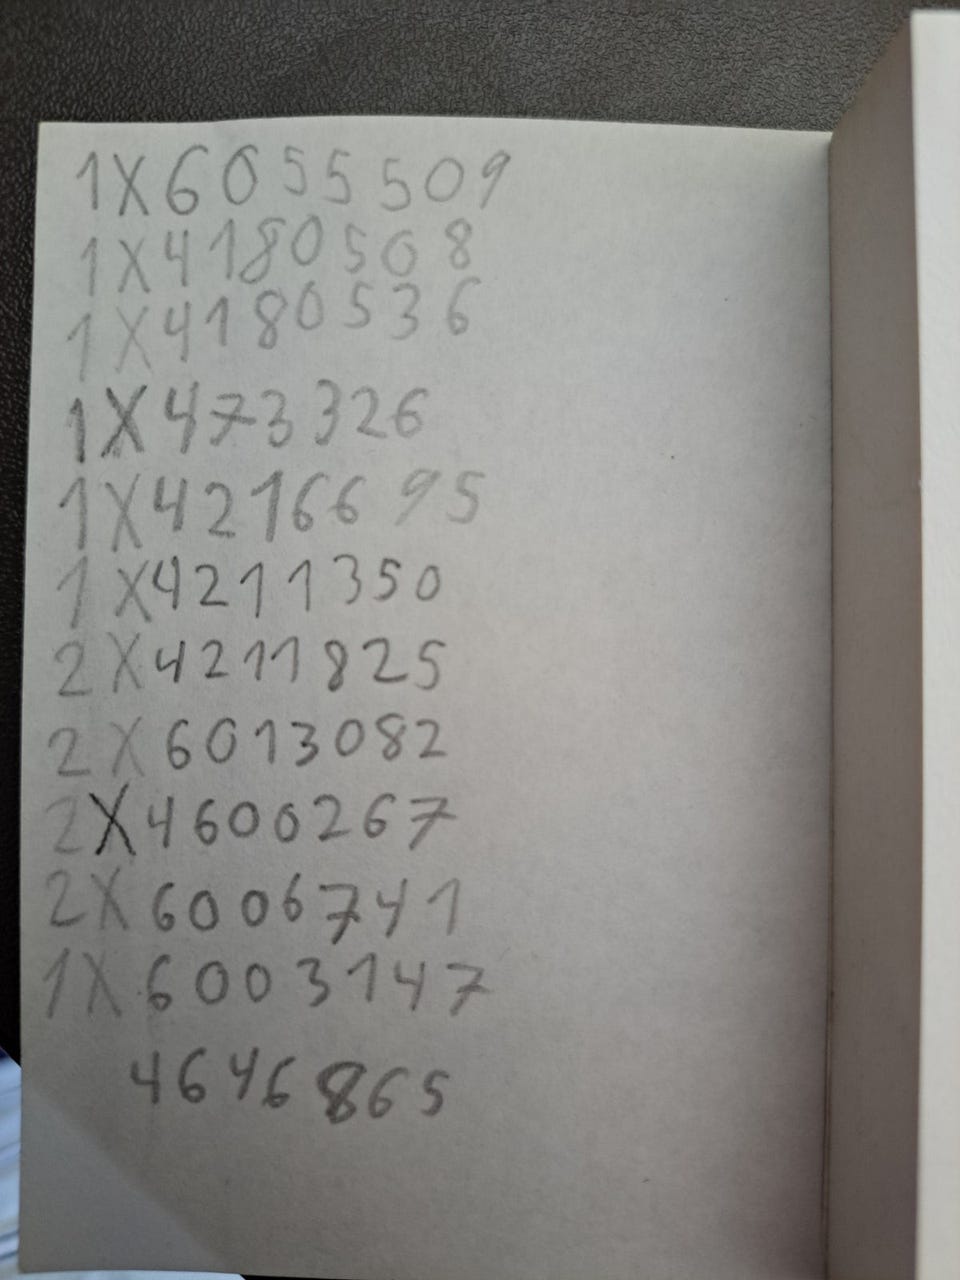 1X6055509
1X4180508
1X4180536
1X473326
1X4216695
1X4211350
2X4211825
2X6013082
2X4600267
2X6006741
1X6003147
4646865